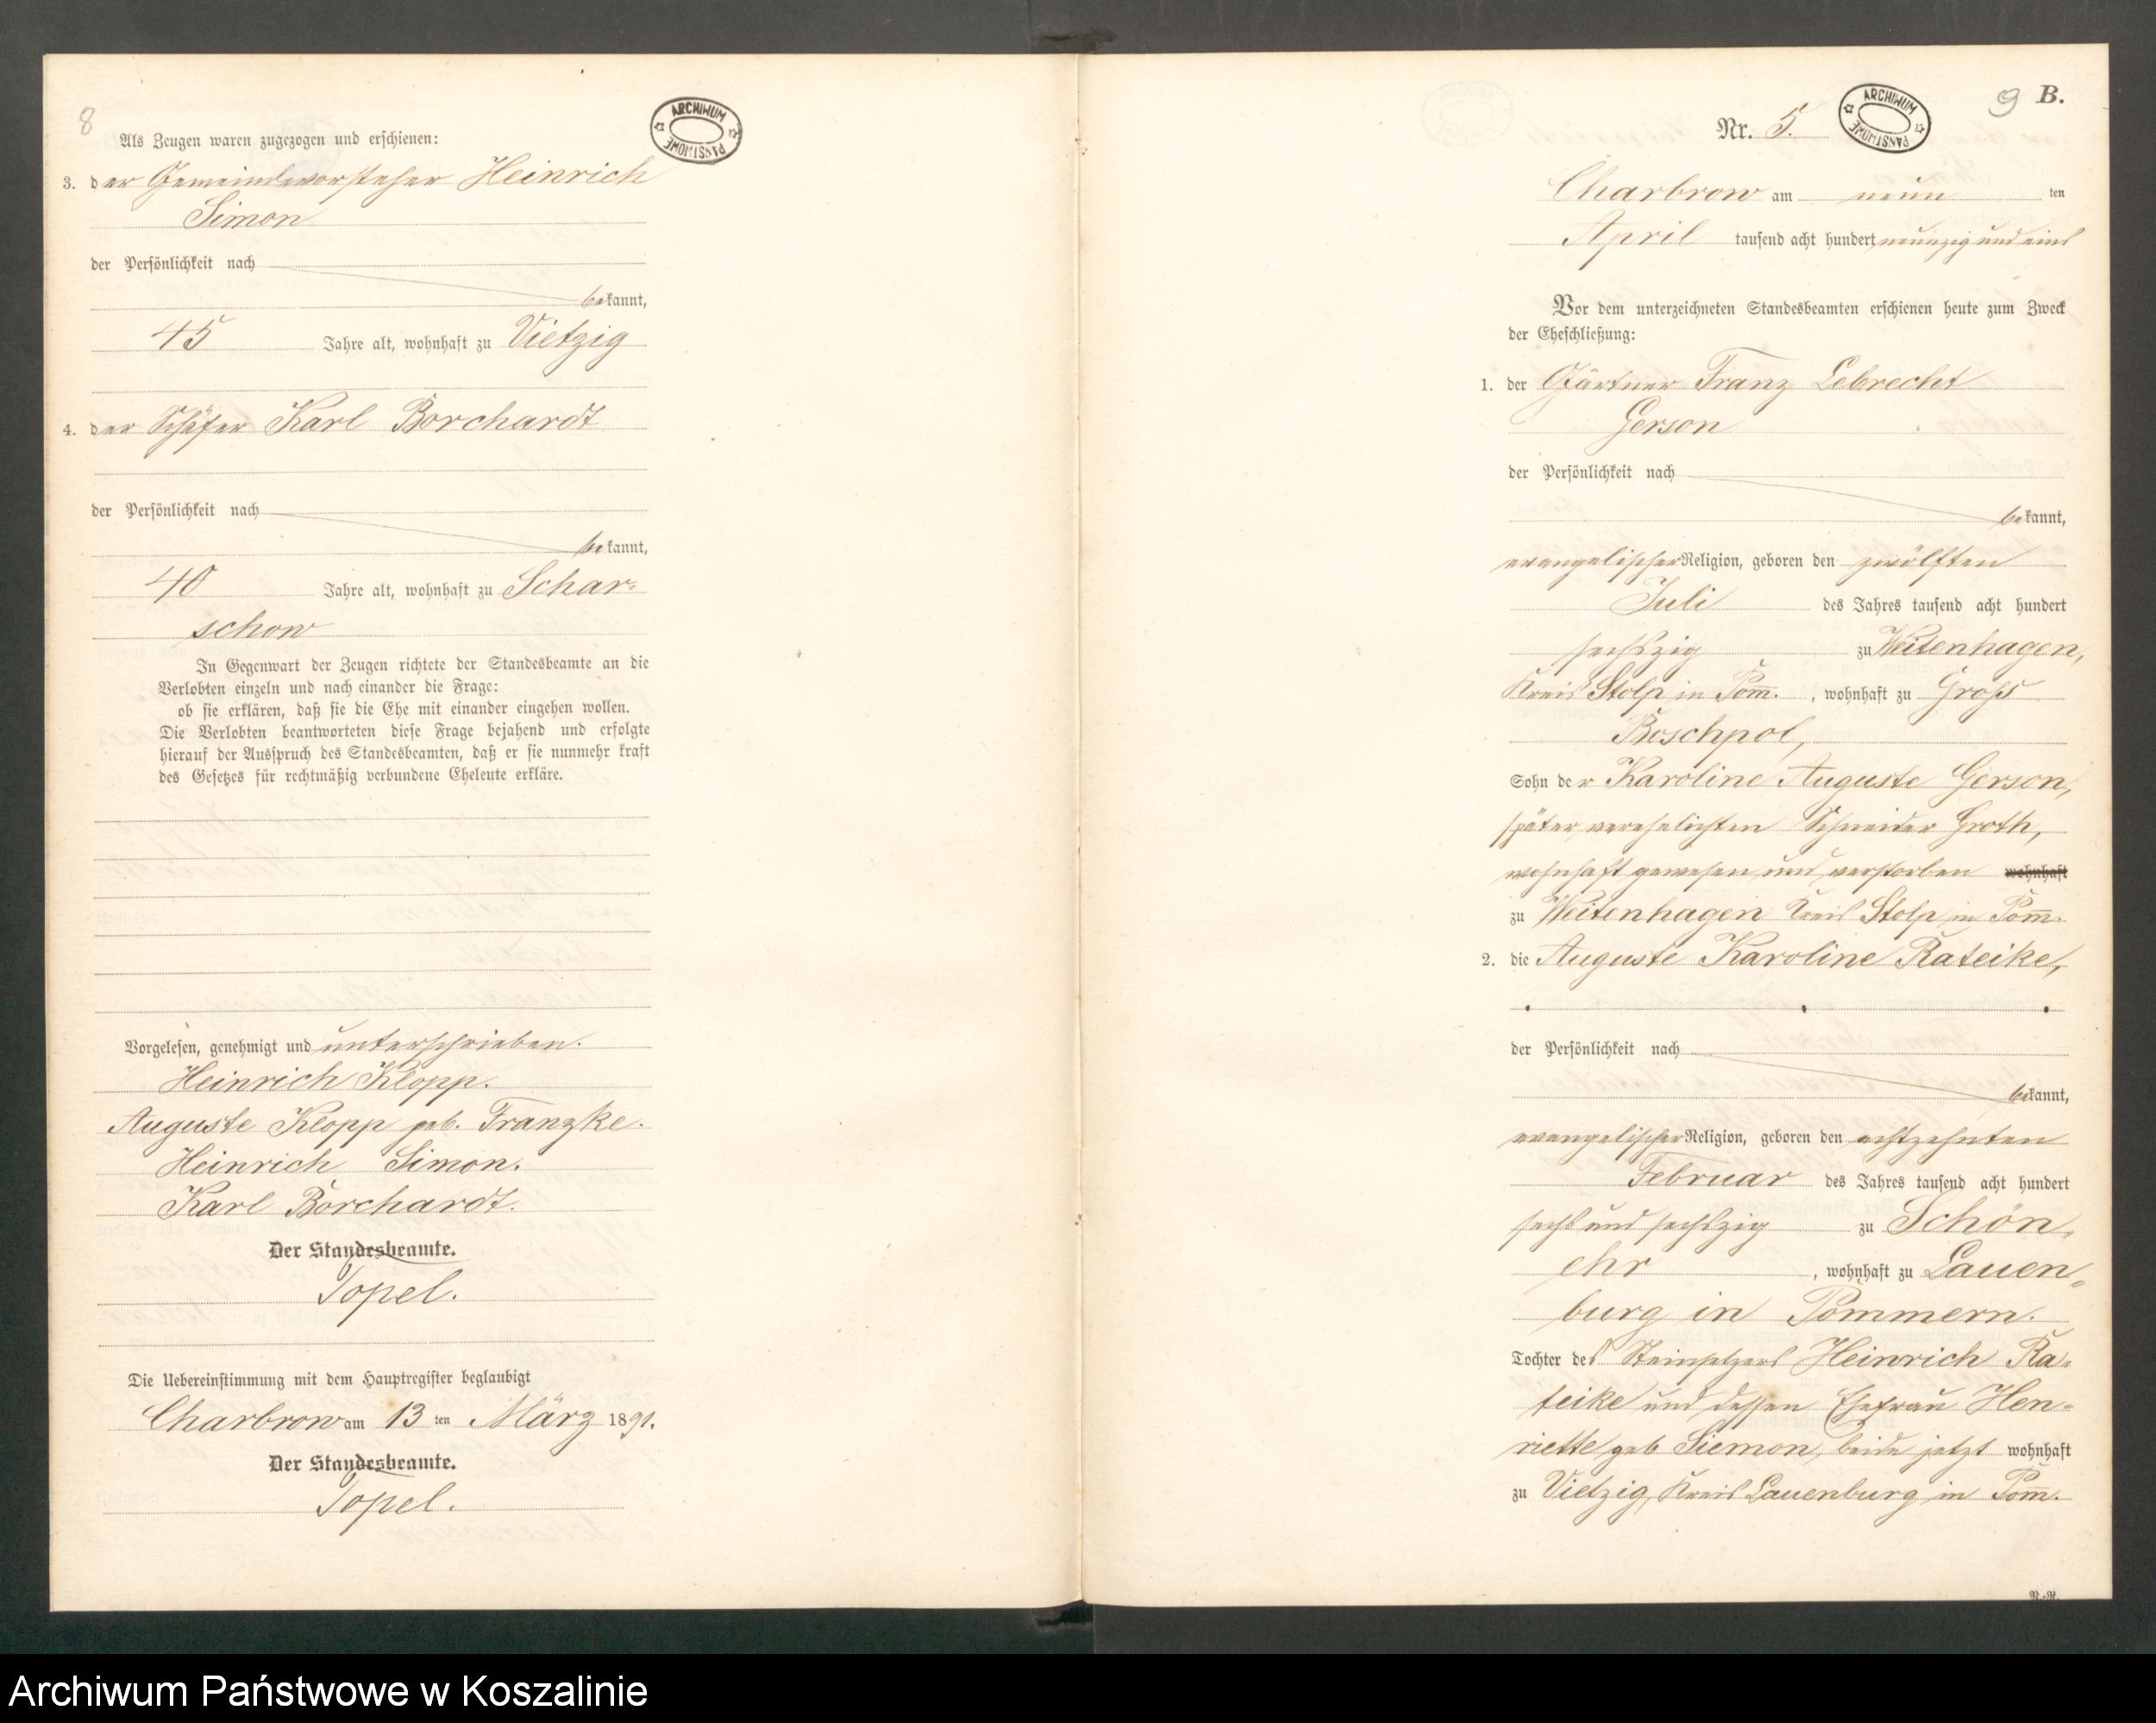 8
ARCHIWUM PAŃSTWOWE
Als Zeugen waren zugezogen und erschienen:
3. der Gemeindevorsteher Heinrich
Simon
der Persönlichkeit nach
bekannt,
45 Jahre alt, wohnhaft zu Vietzig
4. der Schäfer Karl Borchardt
der Persönlichkeit nach
bekannt,
40 Jahre alt, wohnhaft zu Schar-
schow
In Gegenwart der Zeugen richtete der Standesbeamte an die
Verlobten einzeln und nach einander die Frage:
ob sie erklären, daß sie die Ehe mit einander eingehen wollen.
Die Verlobten beantworteten diese Frage bejahend und erfolgte
hierauf der Ausspruch des Standesbeamten, daß er sie nunmehr kraft
des Gesetzes für rechtmäßig verbundene Eheleute erkläre.
Vorgelesen, genehmigt und unterschrieben.
Heinrich Klopp.
Auguste Klopp geb. Franzke.
Heinrich Simon.
Karl Borchardt.
Der Standesbeamte.
Topel.
Die Uebereinstimmung mit dem Hauptregister beglaubigt
Charbrow am 13 ten März 1891.
Der Standesbeamte.
Topel.
9 B.
ARCHIWUM PAŃSTWOWE
Nr. 5.
Charbrow am neun ten
April tausend acht hundert neunzig und eins
Vor dem unterzeichneten Standesbeamten erschienen heute zum Zweck
der Eheschließung:
1. der Gärtner Franz Lebrecht
Gerson
der Persönlichkeit nach
bekannt,
evangelischer Religion, geboren den zwölften
Juli des Jahres tausend acht hundert
sechszig zu Weitenhagen,
Kreis Stolp in Pom̅., wohnhaft zu Gross
Boschpol,
Sohn der Karoline Auguste Gerson,
später verehelichten Schneider Groth,
wohnhaft gewesen und verstorben wohnhaft
zu Weitenhagen Kreis Stolp in Pom̅.
2. die Auguste Karoline Rateike,
der Persönlichkeit nach
bekannt,
evangelischer Religion, geboren den achtzehnten
Februar des Jahres tausend acht hundert
sechs und sechszig zu Schön-
ehr, wohnhaft zu Lauen-
burg in Pommern.
Tochter des Steinsetzers Heinrich Ra-
teike und dessen Ehefrau Hen-
riette geb Siemon, beide jetzt wohnhaft
zu Vietzig, Kreis Lauenburg in Pom̅.
Archiwum Państwowe w Koszalinie